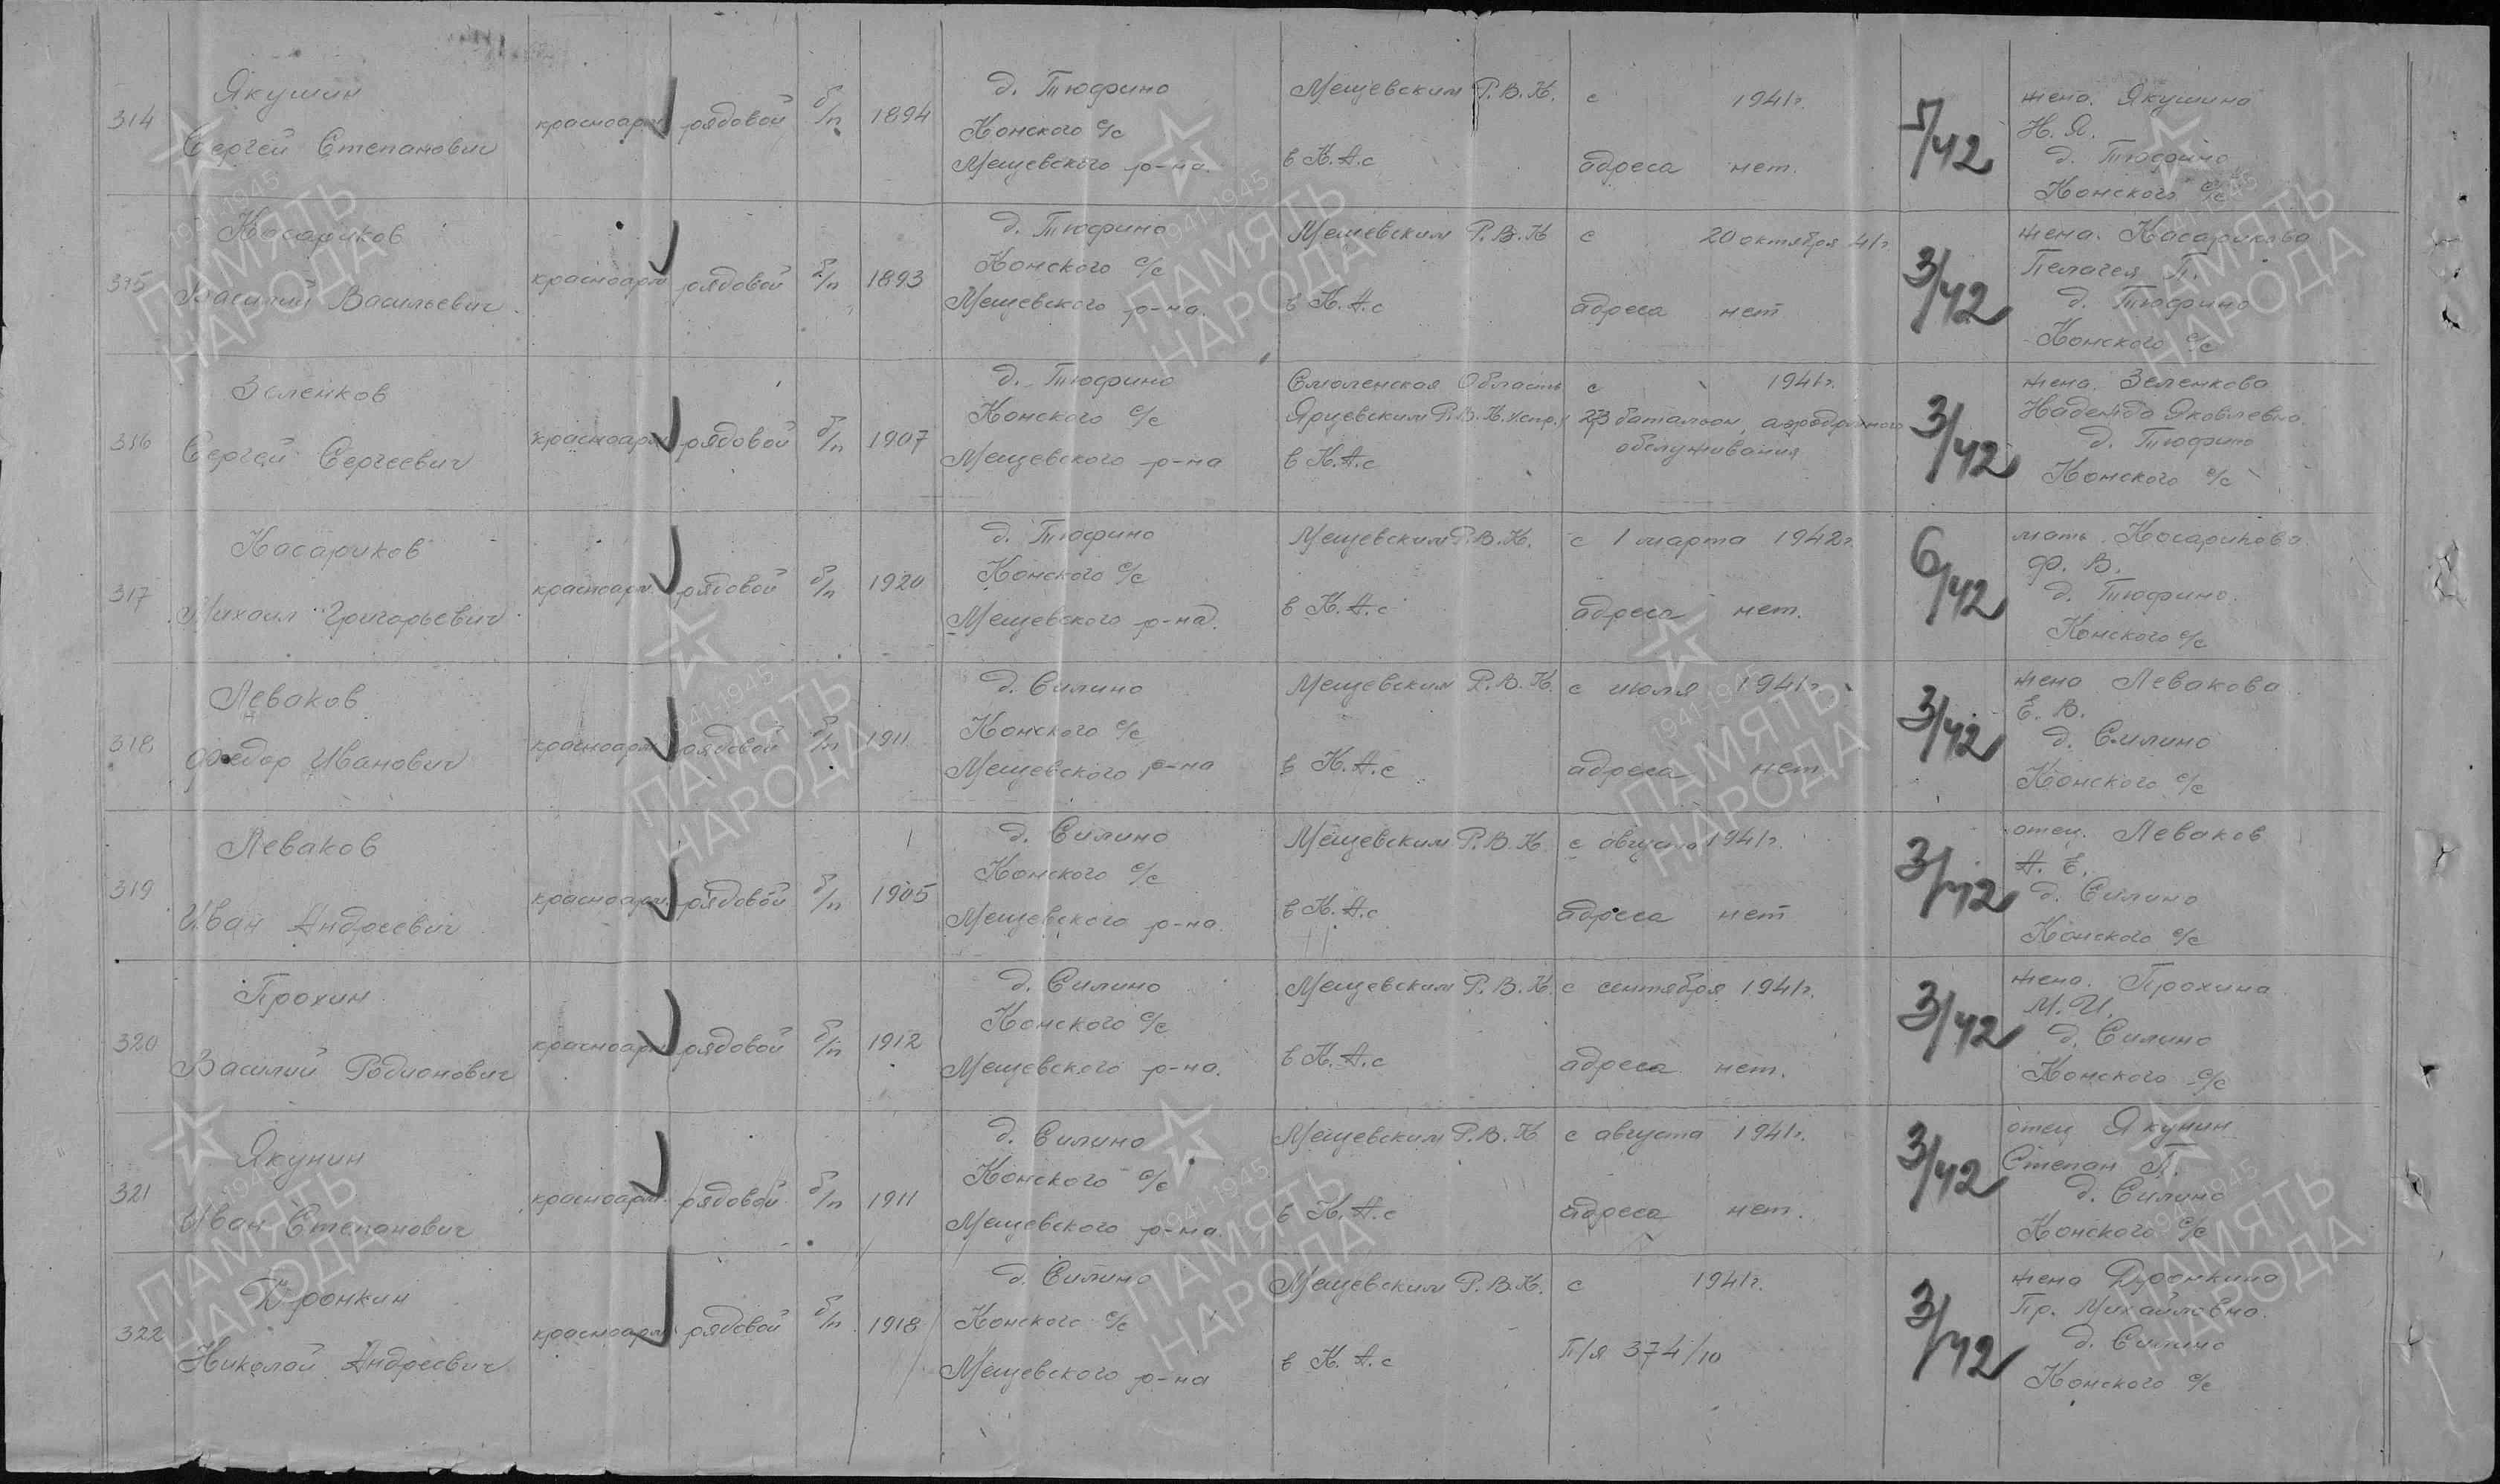 314
Якушин
Сергей Степанович
красноарм
рядовой
б/п
1894
д. Тюфрино
Конского с/с
Мещевского р-на.
Мещевским Р.В.К.
в К.А.с
с 1941г.
адреса нет.
5/42
жена. Якушина
Н. Я.
д. Тюфрино
Конского с/с
315
Касариков
Василий Васильевич
красноарм
рядовой
б/п
1893
д. Тюфрино
Конского с/с
Мещевского р-на.
Мещевским Р.В.К
в К.А.с
с 20 октября 41г
адреса нет
3/42
жена. Касарикова
Пелагея П.
д. Тюфрино
Конского с/с
316
Зеленков
Сергей Сергеевич
красноарм
рядовой
б/п
1907
д. Тюфрино
Конского с/с
Мещевского р-на
Смоленская Область
Ярцевским Р.В.К.
в К.А.с
с 1941г.
23 батальон аэродромного
обслуживания
3/42
жена Зеленкова
Надежда Яковлевна
д. Тюфрино
Конского с/с
317
Касариков
Михаил Григорьевич
красноарм.
рядовой
б/п
1920
д. Тюфрино
Конского с/с
Мещевского р-на.
Мещевским Р.В.К.
в К.А.с
с 1 марта 1942г.
адреса нет.
6/42
мать Касарикова
Ф. В.
д. Тюфрино.
Конского с/с
318
Леваков
Федор Иванович
красноарм
рядовой
б/п
1911
д. Силино
Конского с/с
Мещевского р-на
Мещевским Р.В.К.
в К.А.с
с июля 1941г.
адреса нет
3/42
жена Левакова
Е. В.
д. Силино
Конского с/с
319
Леваков
Иван Андреевич
красноарм.
рядовой
б/п
1905
д. Силино
Конского с/с
Мещевского р-на.
Мещевским Р.В.К
в К.А.с
с августа 1941г.
адреса нет
3/42
отец. Леваков
А. Е.
д. Силино
Конского с/с
320
Прохин
Василий Родионович
красноарм
рядовой
б/п
1912
д. Силино
Конского с/с
Мещевского р-на.
Мещевским Р.В.К.
в К.А.с
с сентября 1941г.
адреса нет.
3/42
жена. Прохина
М.И.
д. Силино
Конского с/с
321
Якунин
Иван Степанович
красноарм.
рядовой
б/п
1911
д. Силино
Конского с/с
Мещевского р-на.
Мещевским Р.В.К
в К.А.с
с августа 1941г.
адреса нет.
3/42
отец Якунин
Степан П.
д. Силино
Конского с/с
322
Дронкин
Николай Андреевич
красноарм
рядовой
б/п
1918
д. Силино
Конского с/с
Мещевского р-на
Мещевским Р.В.К.
в К.А.с
с 1941г.
П/я 374/10
3/42
жена Дронкина
Пр. Михайловна.
д. Силино
Конского с/с
1941-1945
ПАМЯТЬ
НАРОДА
1941-1945
ПАМЯТЬ
НАРОДА
1941-1945
ПАМЯТЬ
НАРОДА
1941-1945
ПАМЯТЬ
НАРОДА
1941-1945
ПАМЯТЬ
НАРОДА
1941-1945
ПАМЯТЬ
НАРОДА
1941-1945
ПАМЯТЬ
НАРОДА
1941-1945
ПАМЯТЬ
НАРОДА